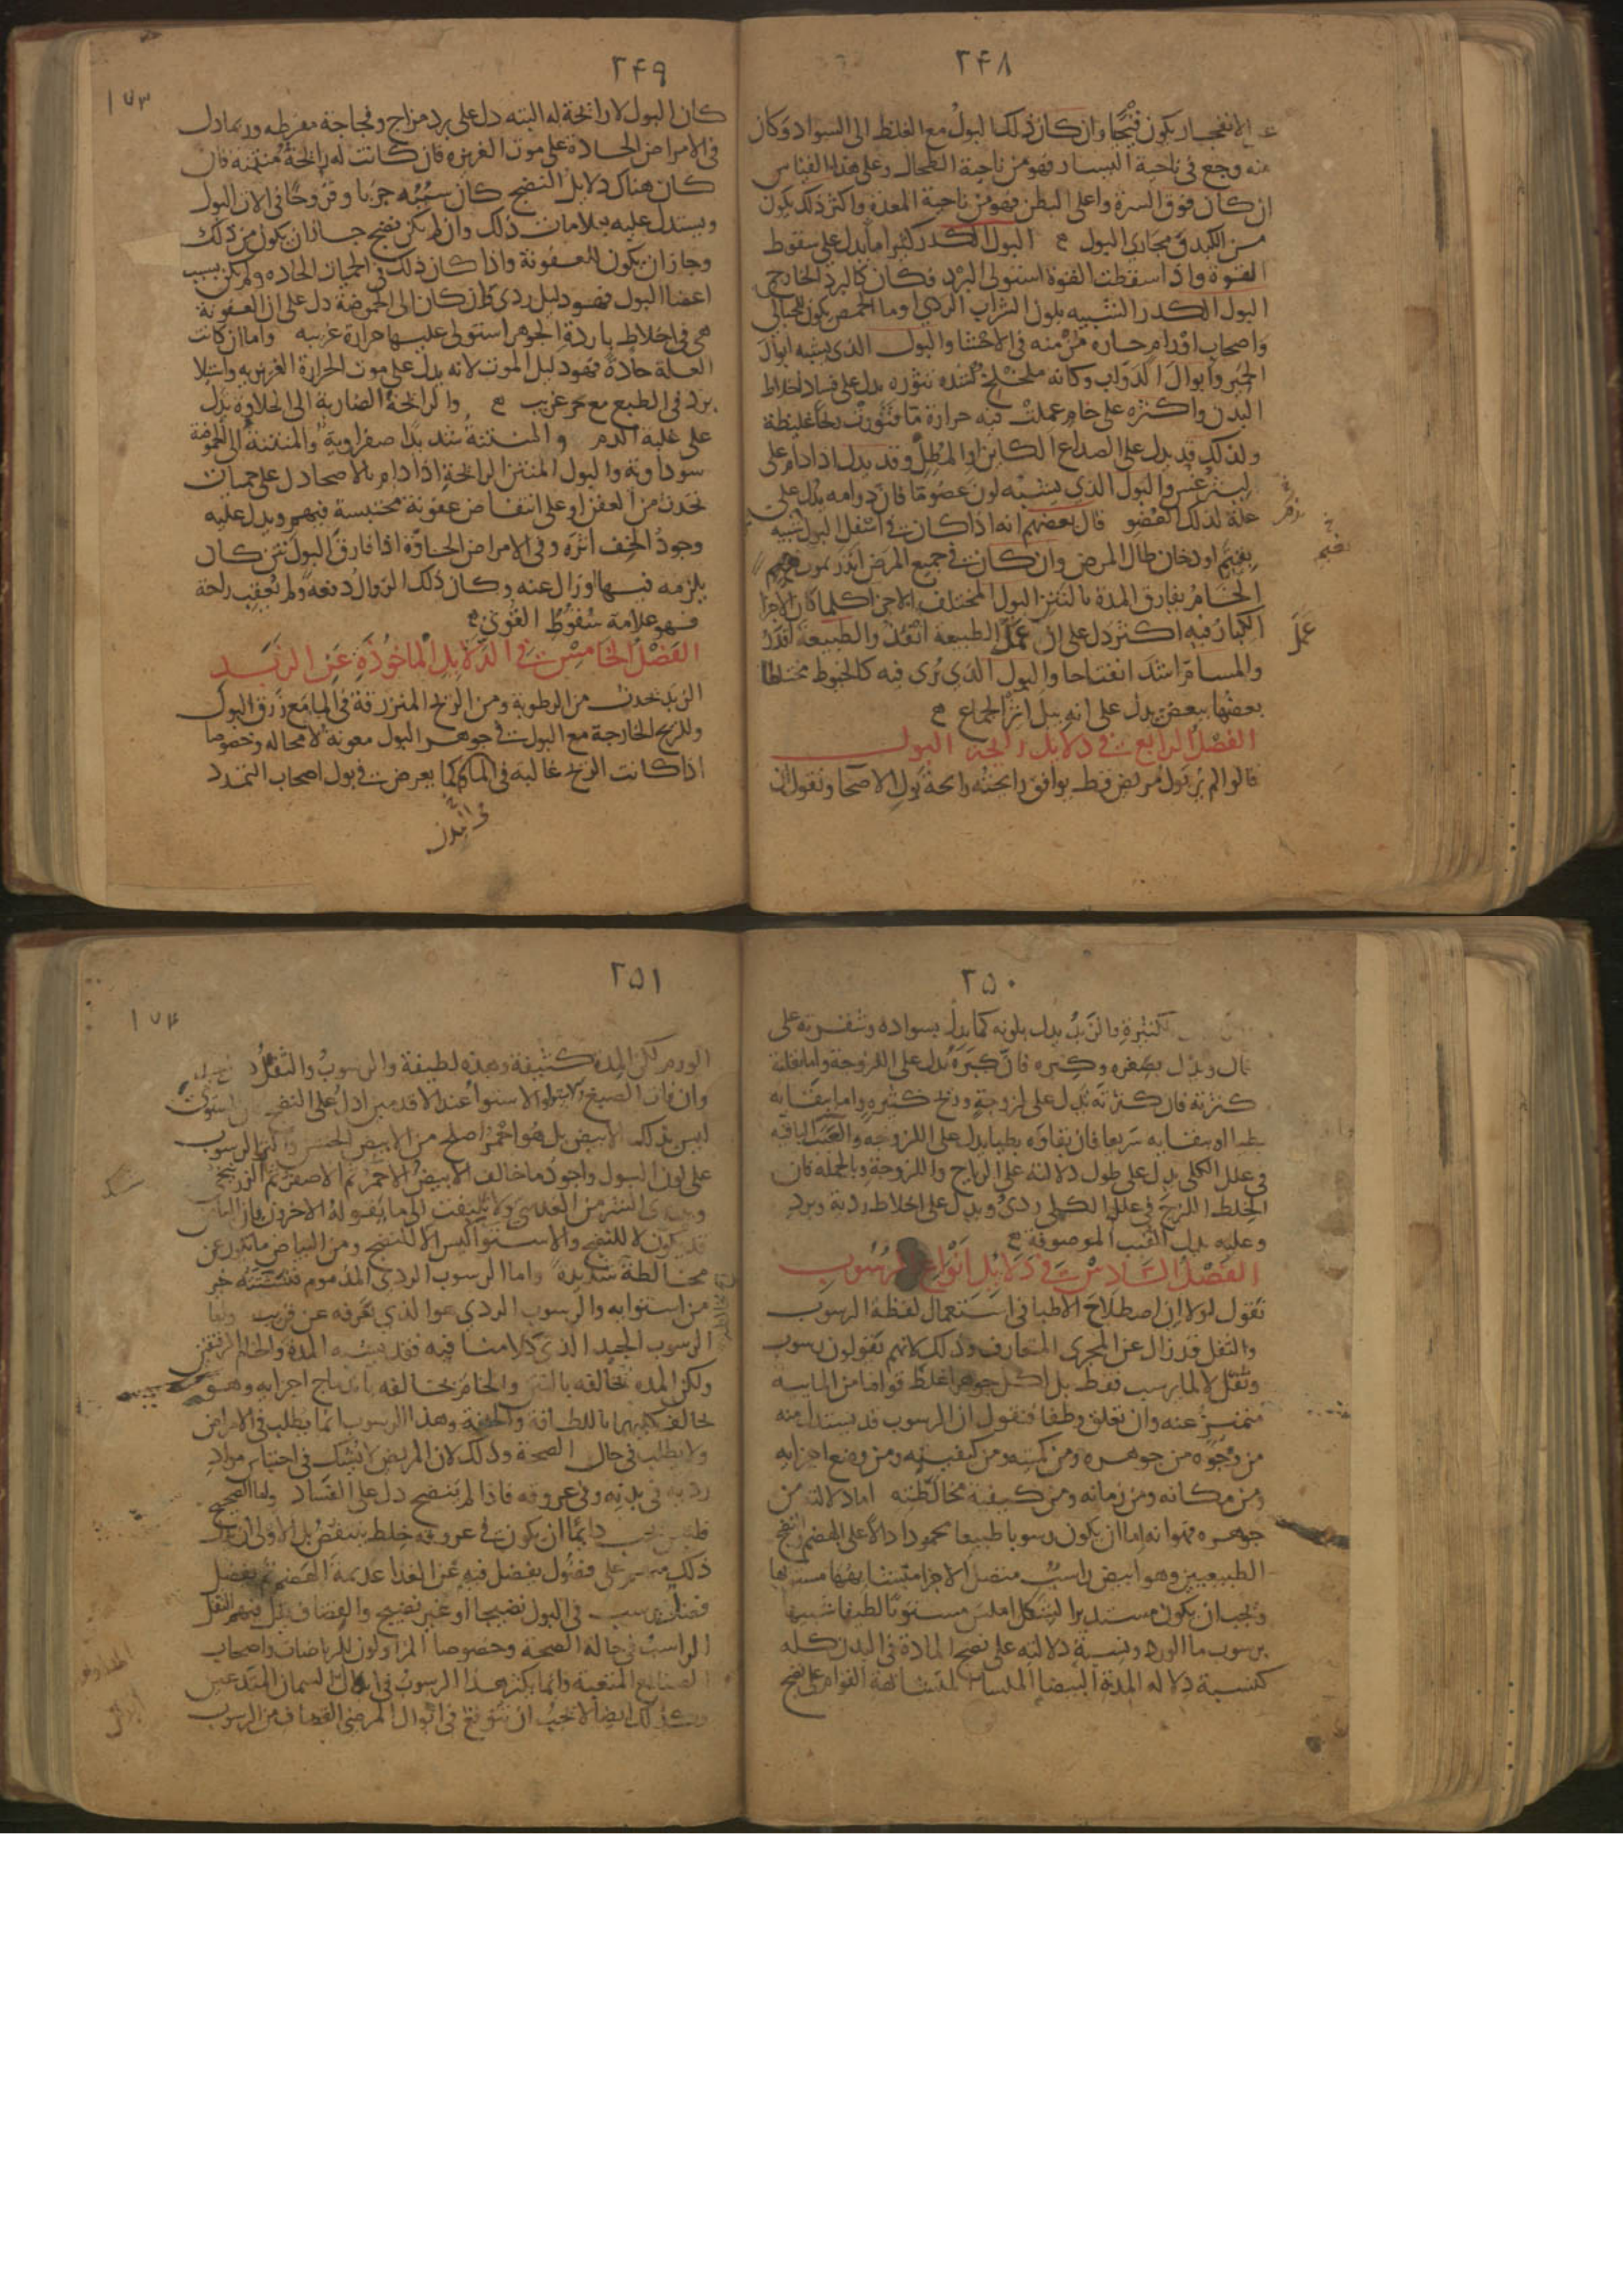 ٢۴٨
الانفجار يكون قيحا وان كان ذلك البول مع الغلظ الى السواد وكان
منه وجع فى ناحية اليسار فهو من ناحية الطحال وعلى هذا القياس
ان كان فوق السرة واعلى البطن فهو من ناحية المعدة واكثر ذلك يكون
من الكبد فى مجارى البول البول الكدر كثيرا ما يدل على سقوط
القوة واذا سقطت القوة استولى البرد فكان كالبرد الخارج
البول الكدر الشبيه بلون الشراب الردى او ماء الحمص يكون للحبالى
واصحاب اورام حارة مزمنة فى الاحشا والبول الذى يشبه ابوال
الحمير وابوال الدواب وكانه ملخلخ لشدة تثوره يدل على فساد اخلاط
البدن واكثره على خام عملت فيه حرارة ما فثورت ريحا غليظة
ولذلك قد يدل على الصداع الكاين او المطل وقد يدل اذا دام على
ليثرغس والبول الذى يشبه لون عضو ما فان دوامه يدل على
علة لذلك العضو قال بعضهم انه اذا كان فى اسفل البول شبيه
بغيم او دخان طال المرض وان كان فى جميع المرض انذر بموت
الخام يفارق المدة بالنتن البول المختلف الاجزا كلما كان الاجزا
الكبار فيه اكثر دل على ان عمل الطبيعة انفذ والطبيعة اقدر
والمسام اشد انفتاحا والبول الذى يرى فيه كالخيوط مختلطا
بعضها ببعض يدل على انه بيل اثر الجماع
الفصل الرابع فى دلايل رايحة البول
قالوا لم ير بول مريض قط يوافق رايحته رايحة بول الاصحا ونقول ان
عمل
٢۴٩
١٧٣
كان البول لا رايحة له البته دل على برد مزاج وفجاجة مفرطه وربما دل
فى الامراض الحادة على موت الغريزه فان كانت له رايحة منتنه فان
كان هناك دلايل النضج كان سببه جربا وقروحا فى الات البول
ويستدل عليه بعلامات ذلك وان لم يكن نضج جاز ان يكون من ذلك
وجاز ان يكون للعفونة واذا كان ذلك فى الحميات الحاده ولم يكن بسبب
اعضا البول فهو دليل ردى فان كان الى الحموضة دل على ان العفونة
هى فى اخلاط باردة الجوهر استولى عليها حرارة غريبه واما ان كانت
العلة حادة فهو دليل الموت لانه يدل على موت الحرارة الغريزيه واستيلا
برد فى الطبع مع حر غريب والرايحة الضاربة الى الحلاوة تدل
على غلبة الدم والمنتنة شديدا صفراوية والمنتنة الى الحموضة
سوداوية والبول المنتن الرايحة اذا دام بالاصحا دل على حميات
تحدث من العفن او على انتفاض عفونة محتبسة فيهم ويدل عليه
وجود الخف اثره وفى الامراض الحادة اذا فارق البول نتن كان
يلزمه فيها وزال عنه وكان ذلك الزوال دفعة ولم تعقبه راحة
فهو علامة سقوط القوى
الفصل الخامس فى الدلايل الماخوذة عن الزبد
الزبد تحدث من الرطوبة ومن الريح المنزرقة فى الما مع زرق البول
وللريح الخارجة مع البول فى جوهر البول معونة لا محاله وخصوصا
اذا كانت الريح غالبة فى الما كما يعرض فى بول اصحاب التمدد
٢۵٠
الكثيرة والزبد يدل بلونه كما يدل بسواده وشقرته على
يرقان ويدل بصغره وكبره فان كبره يدل على اللزوجة واما بقلته
كثرته فان كثرته تدل على لزوجة وريح كثيره واما ببقايه
بطيا او بتفقايه سريعا فان بقاوه بطيا يدل على اللزوجة والعبب الباقيه
فى علل الكلى يدل على طول دلالته على الرياح واللزوجة وبالجملة فان
الخلط اللزج فى علل الكلى ردى ويدل على اخلاط ردية وبرد
وعليه يدل القبب الموصوفة
الفصل السادس فى دلايل انواع الرسوب
نقول اولا ان اصطلاح الاطبا فى استعمال لفظة الرسوب
والثفل قد زال عن المجرى المتعارف وذلك لانهم يقولون رسوب
وثفل لا لما يرسب فقط بل لكل جوهر اغلظ قواما من المايية
متميز عنه وان تعلق وطفا فنقول ان الرسوب قد يستدل منه
من وجوه من جوهره ومن كميته ومن كيفيته ومن وضع اجزايه
ومن مكانه ومن زمانه ومن كيفية مخالطته اما دلالته من
جوهره فهو انه اما ان يكون رسوبا طبيعيا محمودا دالا على الهضم والنضج
الطبيعيين وهو ابيض راسب متصل الاجزا متشابهها مستويها
ويجب ان يكون مستدير الشكل املس مستويا لطيفا شبيها
برسوب ما الورد ونسبة دلالته على نضج المادة فى البدن كله
كنسبة دلالة المدة البيضا الملسا المتشابهة القوام على نضج
٢۵١
١٧۴
الورم لكن المدة كثيفة وهذه لطيفة والرسوب والثفل
وان فات الصبغ والاستوا عند الاقدمين ادل على النضج
ليس بذلك الابيض بل هو احمر اصلح من الابيض الخشن والرسوب
على لون البول واجود ما خالف الابيض الاحمر ثم الاصفر ثم الزرنيخى
ويبتدى الشر من العدسى ولا يلتفت الى ما يقوله الاخرون فان البياض
قد يكون لا للنضج والاستوا ليس الا للنضج ومن البياض ما يكون عن
مخالطة شديدة واما الرسوب الردى المذموم فتشتته خير
من استوايه والرسوب الردى هو الذى تعرفه عن قريب واما
الرسوب الجيد الذى كلامنا فيه فقد يشبه المدة والخام الرقيق
ولكن المدة تخالفه بالنتن والخام يخالفه باندماج اجزايه وهو
يخالف كليهما باللطافة والخفة وهذا الرسوب انما يطلب فى الامراض
ولا يطلب فى حال الصحة وذلك لان المريض لا يشك فى احتباس مواد
ردية فى بدنه وفى عروقه فاذا لم ينضج دل على الفساد واما الصحيح
فليس يجب دايما ان يكون فى عروقه خلط ينتقص بل الاولى ان يدل
ذلك منهم على فضول يفضل فيه عن الغذا عديمة الهضم ثم يفضل
فضل يرسب فى البول نضيجا او غير نضيج والقضاف يقل فيهم الثفل
الراسب فى حالة الصحة وخصوصا المزاولون للرياضات واصحاب
الصنايع المتعبة وانما يكثر هذا الرسوب فى ابوال السمان المتدعين
وكذلك ايضا لا يجب ان يتوقع فى ابوال المرضى القضاف من الرسوب